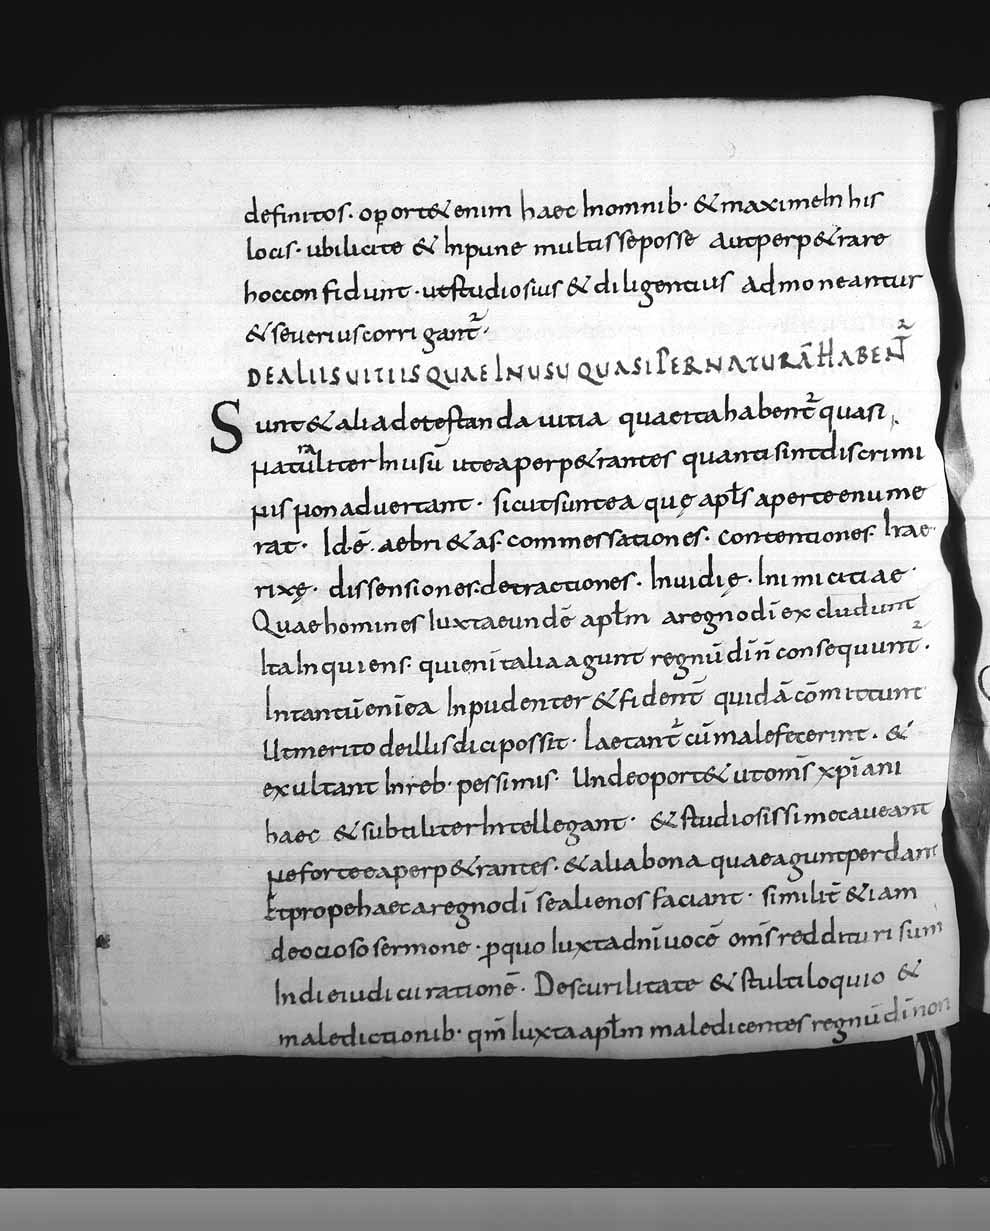 definitos. oport& enim haec Inomnib· & maximeIn his
locis· ubilicite & Inpune multisseposse autperp&rare
hocconfidunt· utstudiosius & diligentius admoneantur
& seueriuscorrigant᷑·
DEALIISUITIISQUAEINUSUQUASIPERNATURĀHABENT᷑
Sunt&aliadetestanda uitia quaeitahabent᷑quasi
natuliterInusū uteaperp&rantes quantisintdiscrimi
nis nonaduertant· sicutsuntea quę apl̄s aperteenume
rat· Id·ē· aebri&as· commessationes· contentiones· Irae·
rixę· dissensiones·detractiones· Inuidię· Inimicitiae·
Quaehomines Iuxtaeundē apl̄m aregnodī excludunt
ItaInquiens· quienītaliaagunt regnū dī n̄ consequunt᷑·
Intantūenīea Inpudenter&fident̄ quidā cōmittunt
Utmerito deillisdicipossit· Laetant᷑ cūmalefecerint· &
exultant Inreb· pessimis· Undeoport& utom̄s xp̄iani
haec &subtiliterIntellegant· & studiosissimecaueant
neforteeaperp&rantes· &aliabona quaeaguntperdant
Etpropehaecaregnodī sealienosfaciant· similit̄ &iam
deociososermone· ꝓquo Iuxtadnīuocē om̄s reddituri sunt
Indieiudicii rationē· Descurilitate & stultiloquio &
maledictionib· qm̄ Iuxtaapl̄m maledicentes regnū dī non